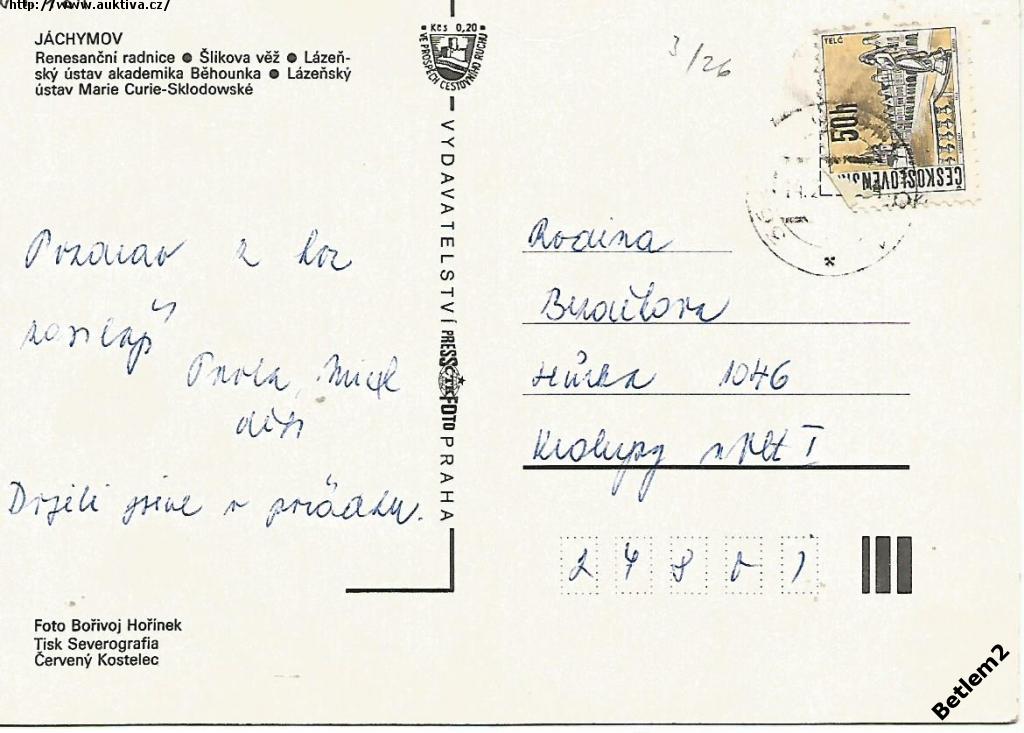 http://www.auktiva.cz/
JÁCHYMOV
Renesanční radnice ● Šlikova věž ● Lázeň-
ský ústav akademika Běhounka ● Lázeňský
ústav Marie Curie-Sklodowské
Kčs 0,20
VE PROSPĚCH CESTOVNÍHO RUCHU
3/26
TELČ
50h
ČESKOSLOVENSKO
Pozdrav z hor
zasílají
Pavla,
děti
Dojeli jsme v pořádku.
VYDAVATELSTVÍ PRESSFOTO PRAHA
ČTK
Rodina
Hůrka 1046
Kralupy n Vlt I
2 7 8 0 1
Foto Bořivoj Hořínek
Tisk Severografia
Červený Kostelec
Betlem2